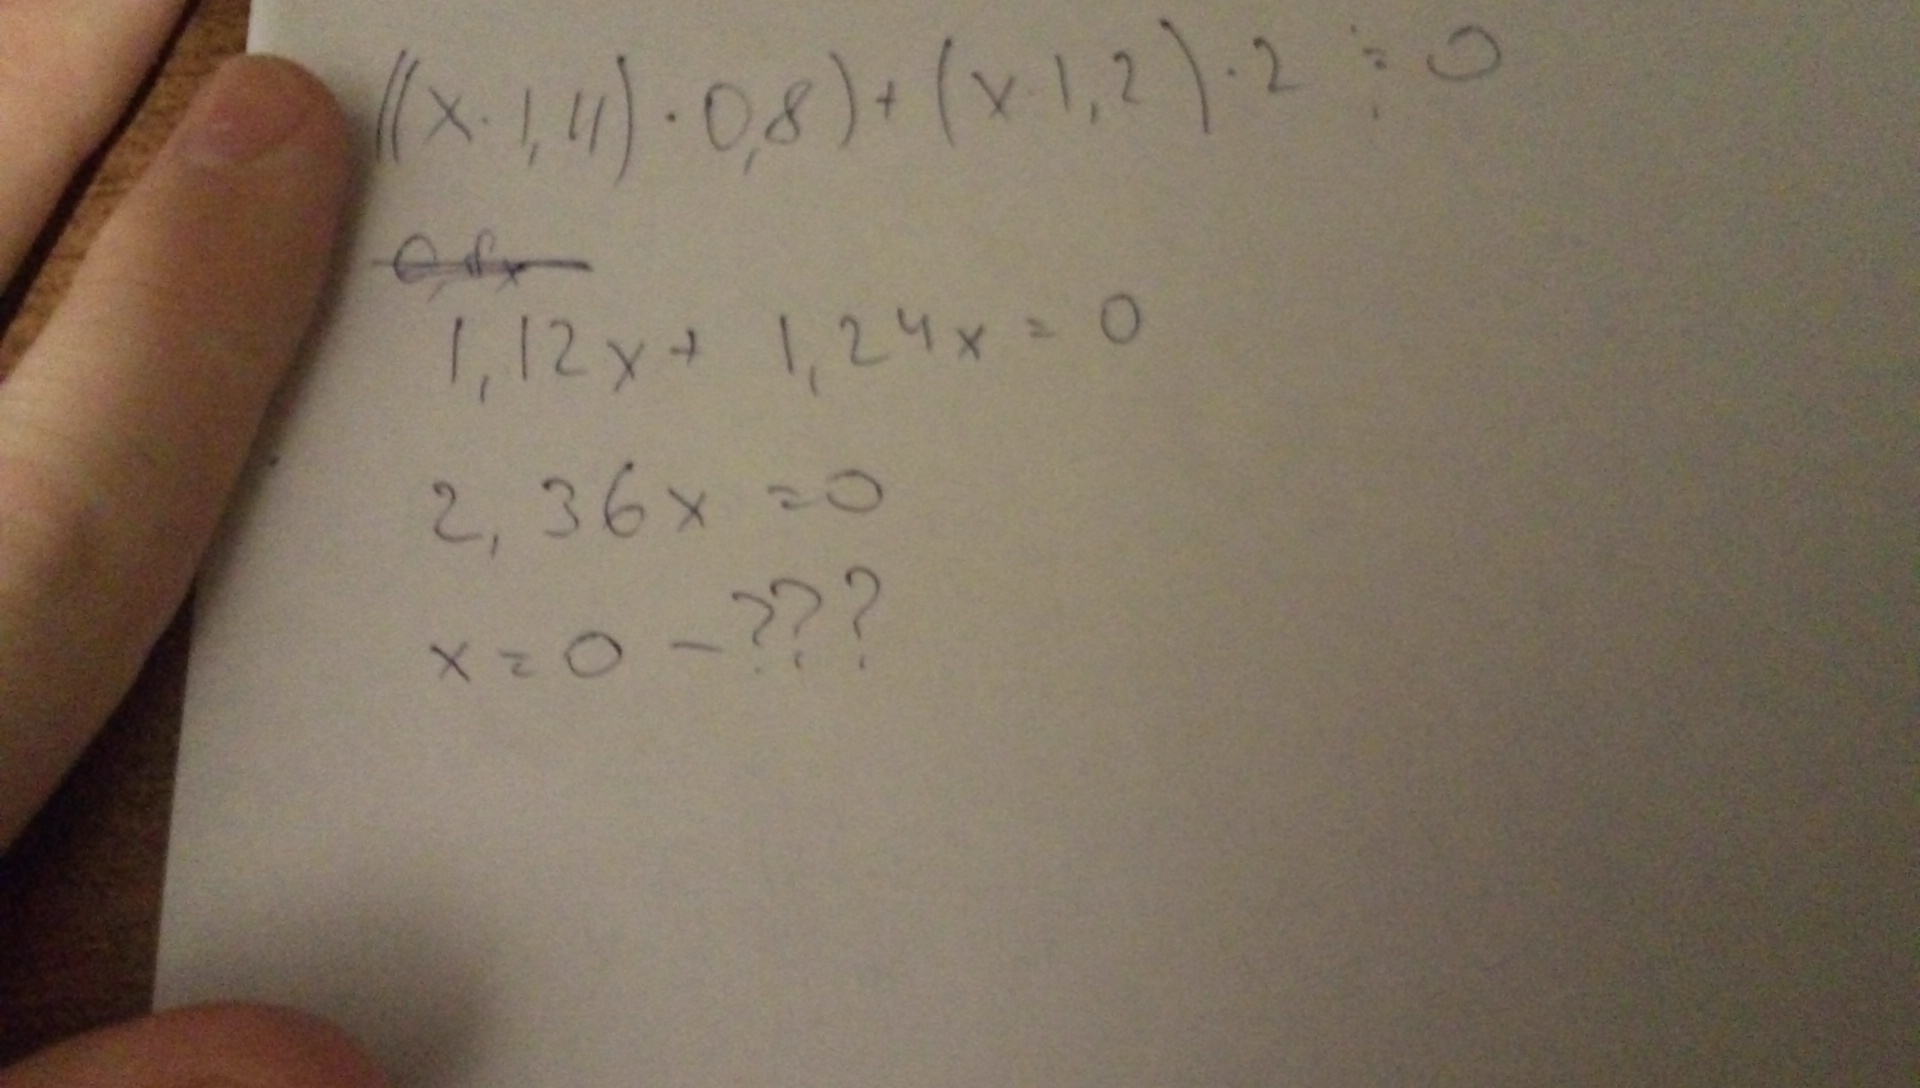 ((x·1,11)·0,8)+(x·1,2)·2 = 0
1,12x+ 1,24x = 0
2,36x =0
x=0 – ???